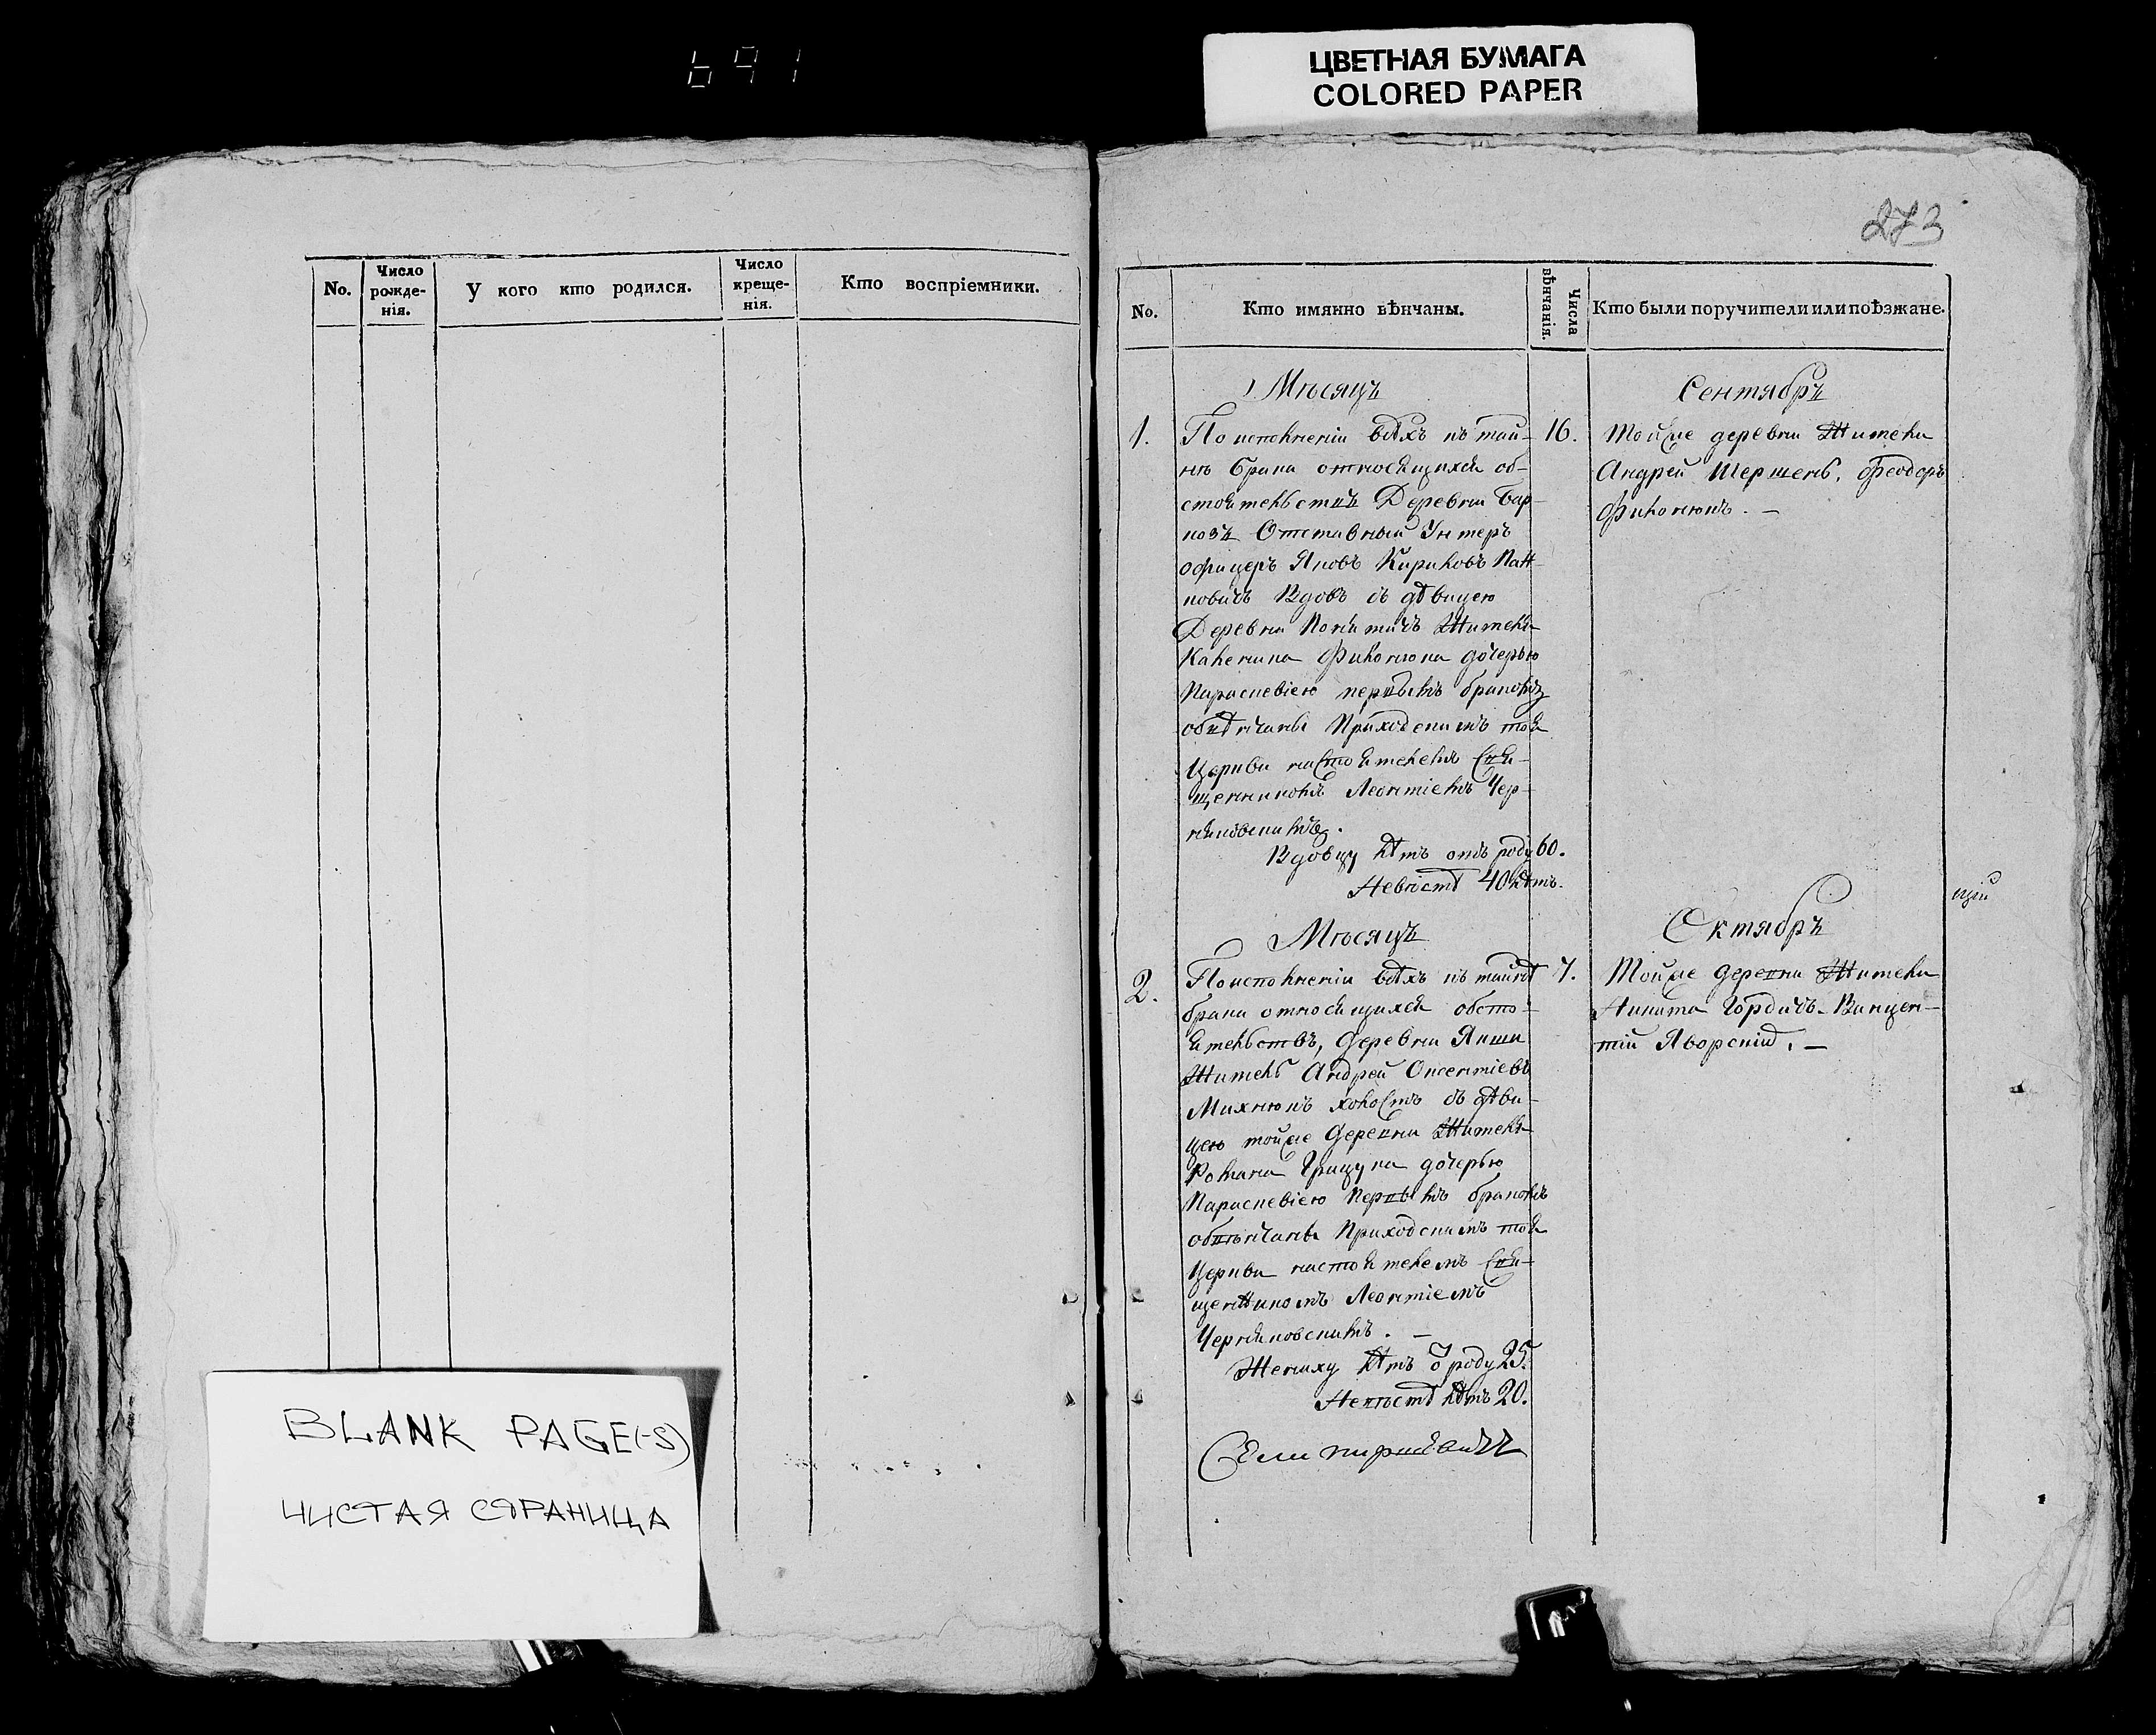 691
ЦВЕТНАЯ БУМАГА
COLORED PAPER
273
No.
Число рожде-нія.
У кого кто родился.
Число креще-нія.
Кто воспріемники.
No.
Кто имянно вѣнчаны.
Числа вѣнчанія.
Кто были поручители или поѣзжане.
Мѣсяцъ
Сентябрь
1.
По исполненіи всѣхъ къ таин-
нѣ брака относящихся об-
стоятельствъ Деревни Бар-
Отставный Унтеръ
офицеръ Яковъ Кириловъ
Вдовъ съ дѣвицею
Деревни Жителя
Филонюка дочерью
Параскевіею первымъ бракомъ
обвѣнчаны Приходскимъ тоя
Церкви настоятелемъ Свя-
щенникомъ Леонтіемъ Чер-
няковскимъ.
Вдовцу лѣтъ отъ роду 60.
Невѣстѣ 40 лѣтъ.
16.
Той же деревни Жители
Андрей Шершень, Феодоръ
Филонюкъ. —
щій
Мѣсяцъ
Октябрь
2.
По исполненіи всѣхъ къ тайнѣ
брака относящихся обсто-
ятельствъ, Деревни Якши
Житель Андрей Оксентіевъ
Михнюкъ холостъ съ дѣви-
цею той же Деревни Жителя
Романа Грицука дочерью
Параскевіею Первымъ бракомъ
обвѣнчаны Приходскимъ тоя
Церкви настоятелемъ Свя-
щенникомъ Леонтіемъ
Черняковскимъ. —
Жениху лѣтъ о роду 25.
Невѣстѣ лѣтъ 20.
7.
Той же деревни Жители
Никита Гордичъ Викцен-
тій Яворскій. —
BLANK PAGE(-S)
ЧИСТАЯ СТРАНИЦА